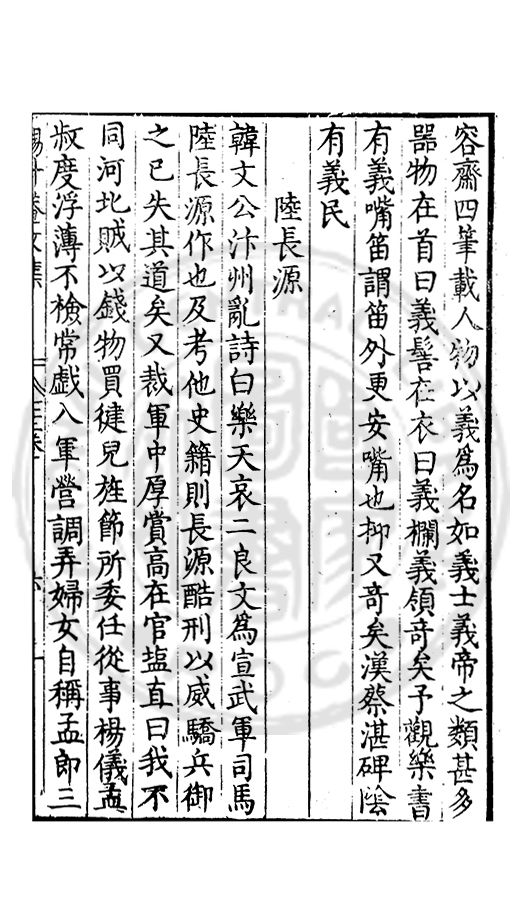 容齋四筆載人物以義爲名如義士義帝之類甚多
器物在首曰義髻在衣曰義欄義領奇矣予觀樂書
有義嘴笛謂笛外更安嘴也抑又奇矣漢蔡湛碑陰
有義民
陸長源
韓文公汴州亂詩白樂天哀二良文爲宣武軍司馬
陸長源作也及考他史籍則長源酷刑以威驕兵御
之已失其道矣又裁軍中厚賞高在官塩直曰我不
同河北賊以錢物買健兒旌節所委任從事楊儀孟
叔度浮薄不檢常戯入軍營調弄婦女自稱孟郎三